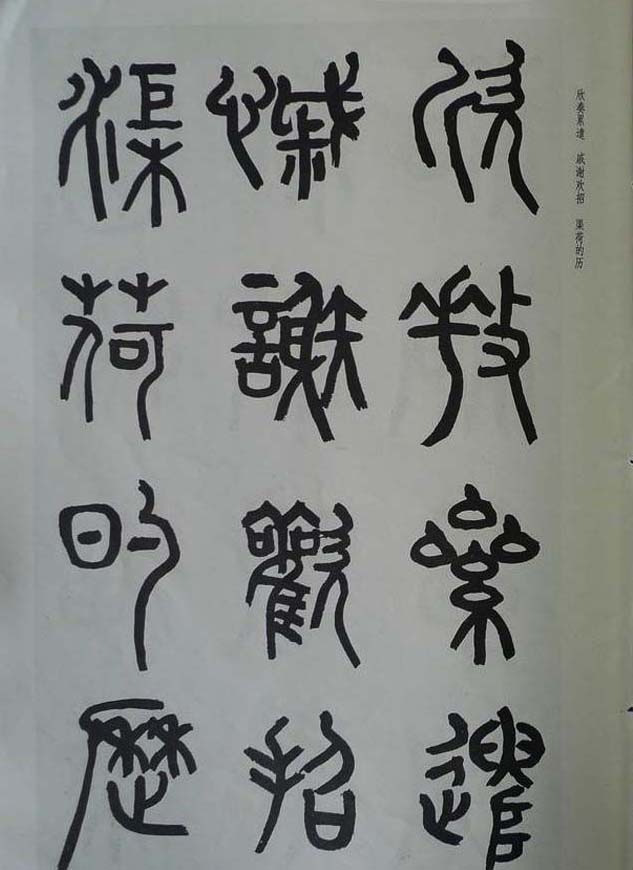 欣奏累遣 戚谢欢招 渠荷的历
欣奏累遣
慽謝歡招
渠荷的歷